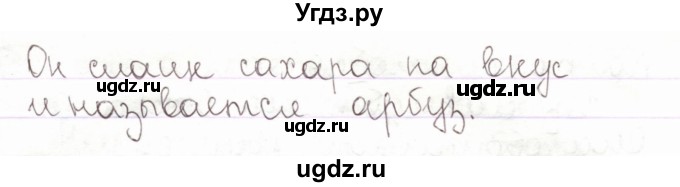 Угдз.ру
Он слаще сахара на вкус
и называется арбуз.
ugdz.ru ugdz.ru
ugdz.ru ugdz.ru
ugdz.ru